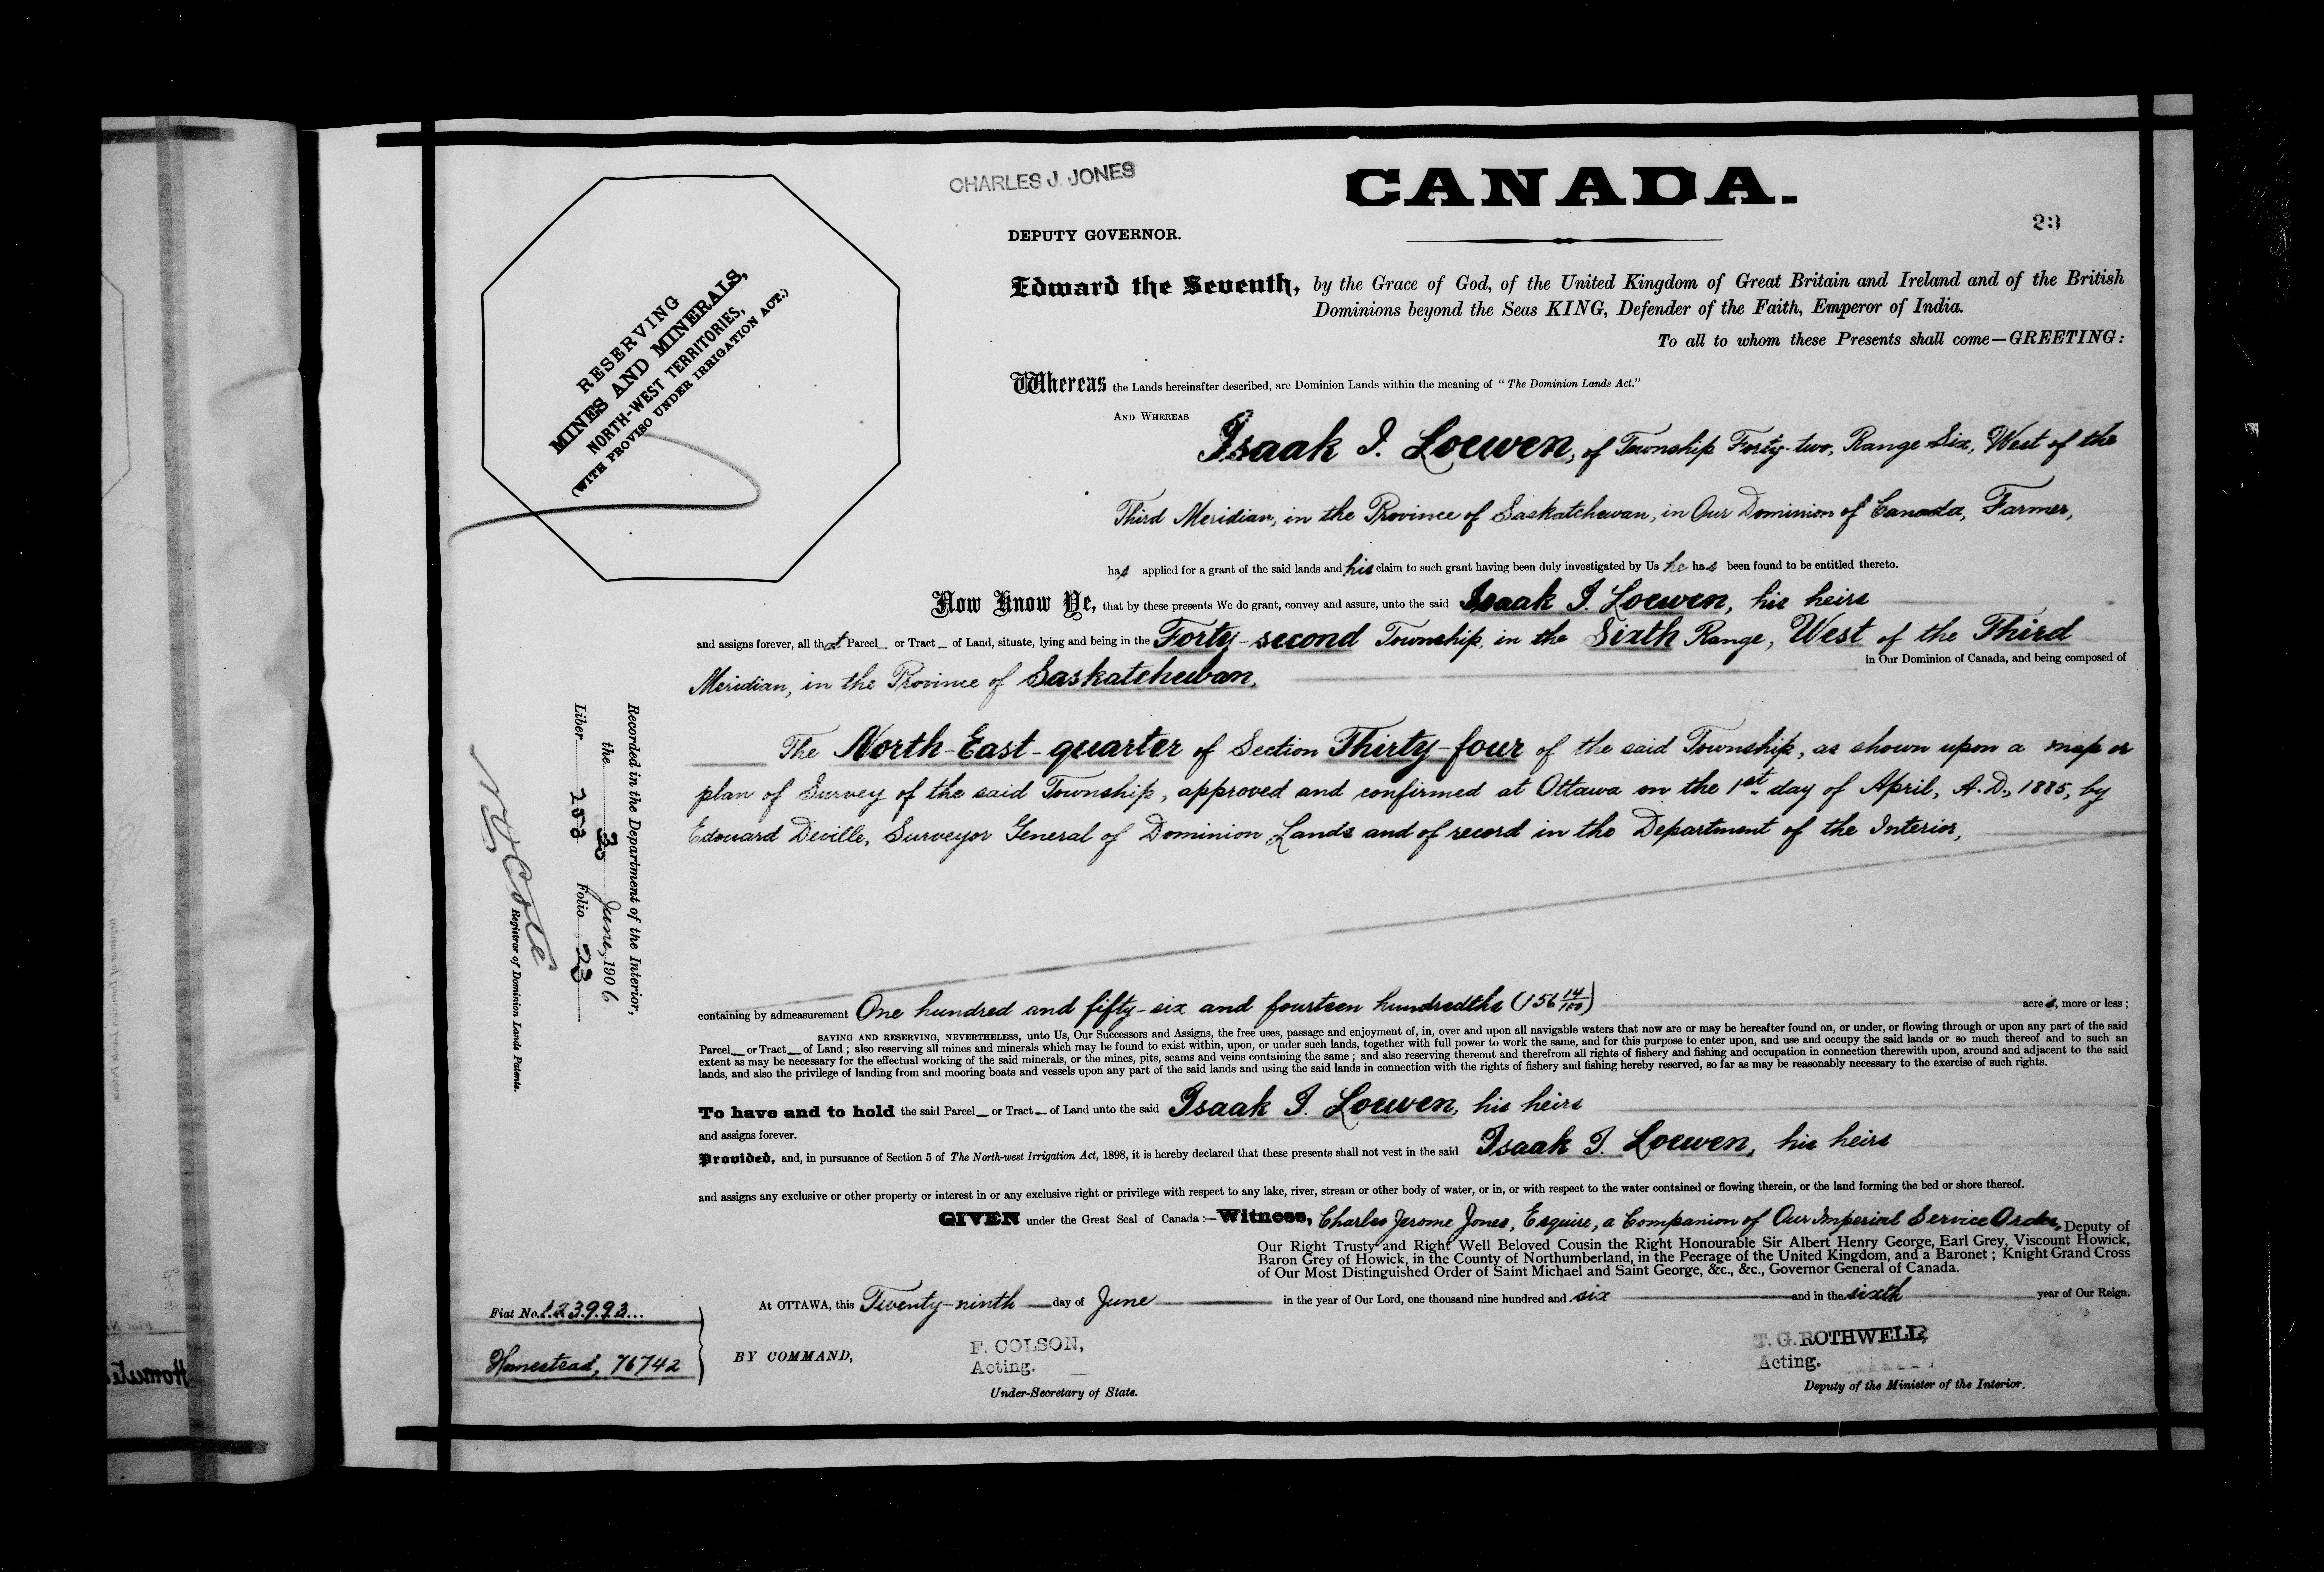 CHARLES J. JONES
CANADA.
23
DEPUTY GOVERNOR.
RESERVING
MINES AND MINERALS,
NORTH-WEST TERRITORIES,
(WITH PROVISO UNDER IRRIGATION ACT.)
Edward the Seventh, by the Grace of God, of the United Kingdom of Great Britain and Ireland and of the British
Dominions beyond the Seas KING, Defender of the Faith, Emperor of India.
To all to whom these Presents shall come—GREETING:
Whereas the Lands hereinafter described, are Dominion Lands within the meaning of "The Dominion Lands Act."
AND WHEREAS
Isaak I. Loewen, of Township Forty-two, Range Six, West of the
Third Meridian, in the Province of Saskatchewan, in Our Dominion of Canada, Farmer,
has applied for a grant of the said lands and his claim to such grant having been duly investigated by Us he has been found to be entitled thereto.
Now Know Ye, that by these presents We do grant, convey and assure, unto the said Isaak I. Loewen, his heirs
and assigns forever, all that Parcel or Tract of Land, situate, lying and being in the Forty-second Township, in the Sixth Range, West of the Third
in Our Dominion of Canada, and being composed of
Meridian, in the Province of Saskatchewan,
The North-East-quarter of Section Thirty-four of the said Township, as shown upon a map or
plan of Survey of the said Township, approved and confirmed at Ottawa on the 1st. day of April, A.D., 1885, by
Edouard Deville, Surveyor General of Dominion Lands and of record in the Department of the Interior,
Recorded in the Department of the Interior,
the 30 June, 1906
Liber 258 Folio 23
N O Coté
Registrar of Dominion Lands Patents.
containing by admeasurement One hundred and fifty-six and fourteen hundredths (156 14/100) acres, more or less;
SAVING AND RESERVING, NEVERTHELESS, unto Us, Our Successors and Assigns, the free uses, passage and enjoyment of, in, over and upon all navigable waters that now are or may be hereafter found on, or under, or flowing through or upon any part of the said
Parcel or Tract of Land; also reserving all mines and minerals which may be found to exist within, upon, or under such lands, together with full power to work the same, and for this purpose to enter upon, and use and occupy the said lands or so much thereof and to such an
extent as may be necessary for the effectual working of the said minerals, or the mines, pits, seams and veins containing the same; and also reserving thereout and therefrom all rights of fishery and fishing and occupation in connection therewith upon, around and adjacent to the said
lands, and also the privilege of landing from and mooring boats and vessels upon any part of the said lands and using the said lands in connection with the rights of fishery and fishing hereby reserved, so far as may be reasonably necessary to the exercise of such rights.
To have and to hold the said Parcel or Tract of Land unto the said Isaak I. Loewen, his heirs
and assigns forever.
Provided, and, in pursuance of Section 5 of The North-west Irrigation Act, 1898, it is hereby declared that these presents shall not vest in the said Isaak I. Loewen, his heirs
and assigns any exclusive or other property or interest in or any exclusive right or privilege with respect to any lake, river, stream or other body of water, or in, or with respect to the water contained or flowing therein, or the land forming the bed or shore thereof.
GIVEN under the Great Seal of Canada:—Witness, Charles Jerome Jones, Esquire, a Companion of Our Imperial Service Order, Deputy of
Our Right Trusty and Right Well Beloved Cousin the Right Honourable Sir Albert Henry George, Earl Grey, Viscount Howick,
Baron Grey of Howick, in the County of Northumberland, in the Peerage of the United Kingdom, and a Baronet; Knight Grand Cross
of Our Most Distinguished Order of Saint Michael and Saint George, &c., &c., Governor General of Canada.
At OTTAWA, this Twenty-ninth day of June in the year of Our Lord, one thousand nine hundred and six and in the sixth year of Our Reign.
Fiat No. 123993...
Homestead, 76742
BY COMMAND,
F. COLSON,
Acting.
Under-Secretary of State.
T. G. ROTHWELL,
Acting.
Deputy of the Minister of the Interior.